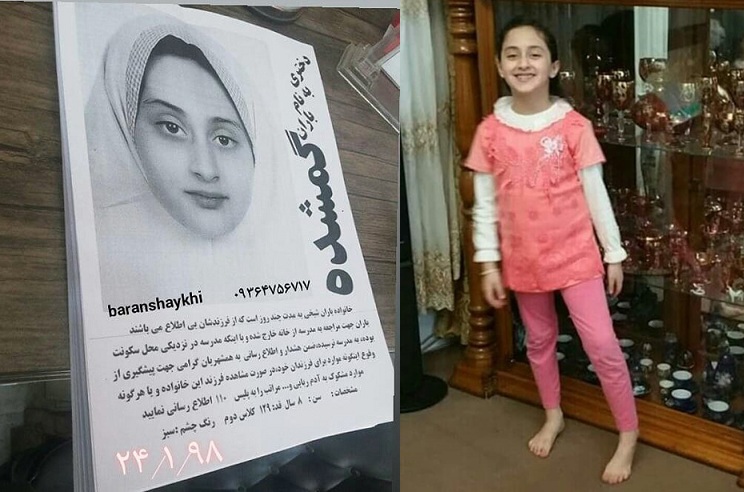 دختری به نام باران
گمشده
baranshaykhi ۰۹۳۶۴۷۵۶۷۱۷
خانواده باران شیخی به مدت چند روز است که از فرزندشان بی اطلاع می باشند
باران جهت مراجعه به مدرسه از خانه خارج شده و با اینکه مدرسه در نزدیکی محل سکونت
بوده، به مدرسه نرسیده، ضمن هشدار و اطلاع رسانی به همشهریان گرامی جهت پیشگیری از
وقوع اینگونه موارد برای فرزندان خود، در صورت مشاهده فرزند این خانواده و یا هرگونه
موارد مشکوک به آدم ربایی و... مراتب را به پلیس ۱۱۰ اطلاع رسانی نمایید
مشخصات : سن : ۸ سال قد: ۱۲۹ کلاس دوم رنگ چشم : سبز
۲۴/۱/۹۸